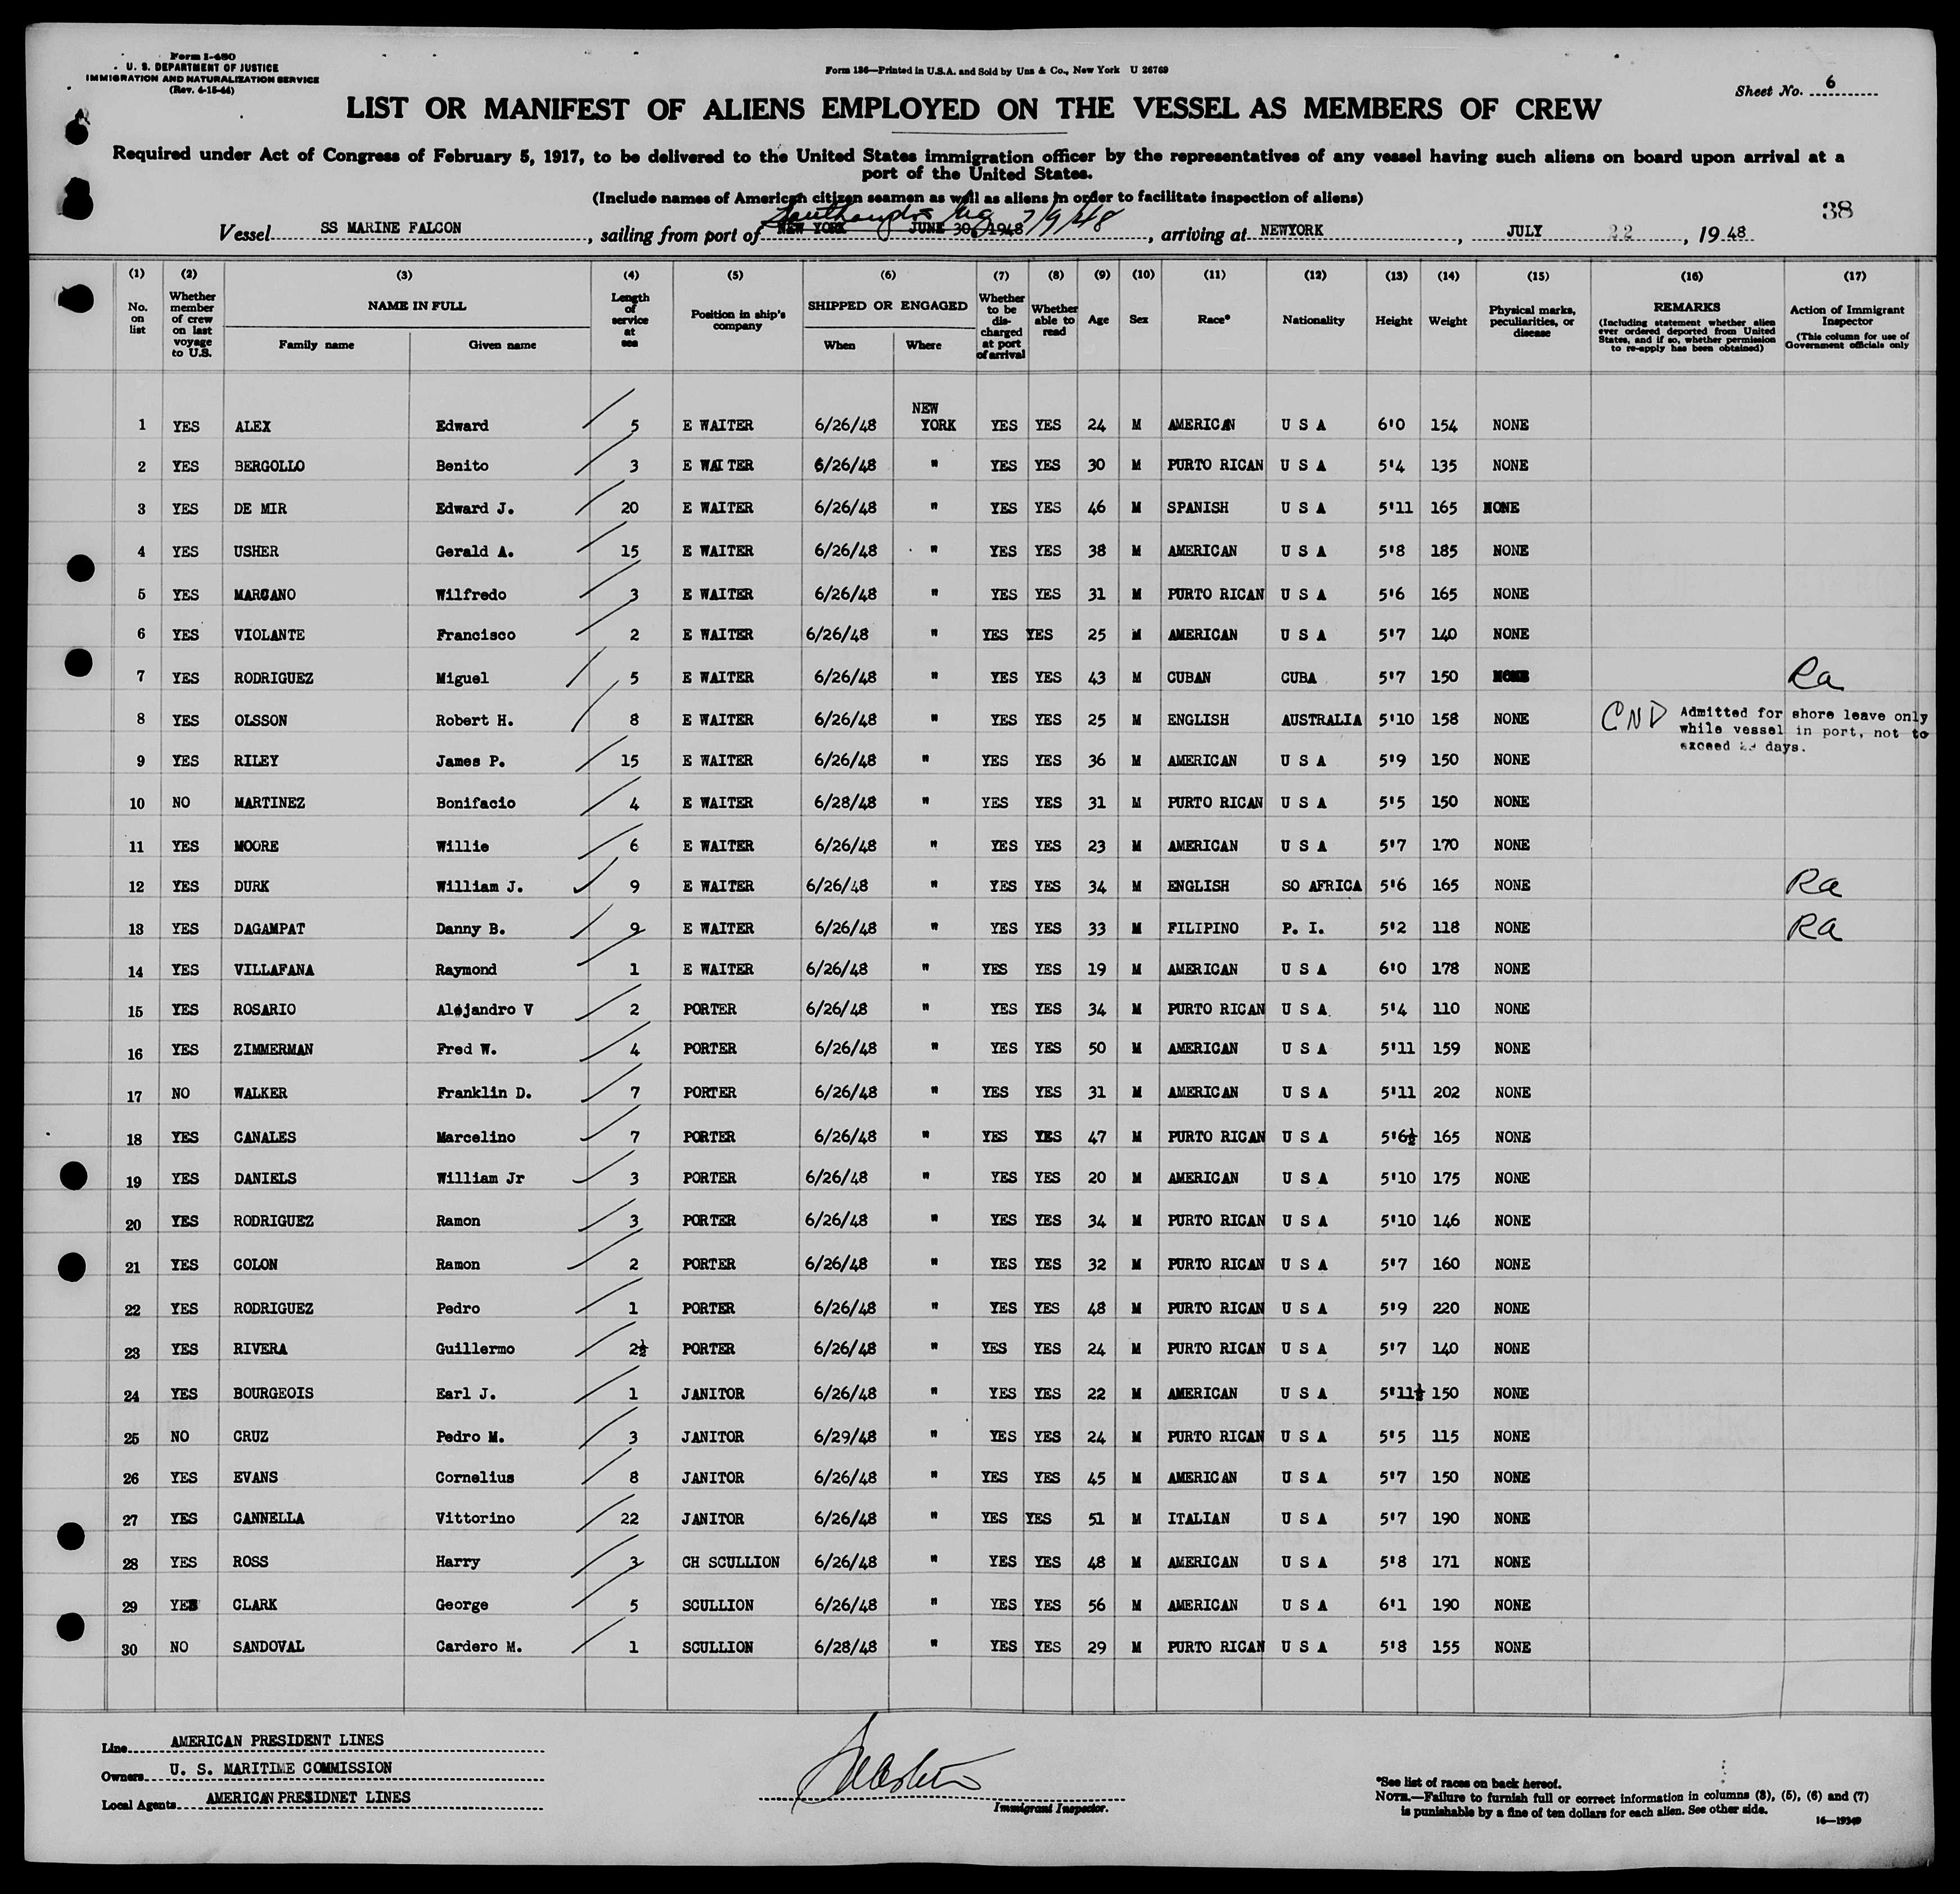 Form I-480
U. S. DEPARTMENT OF JUSTICE
IMMIGRATION AND NATURALIZATION SERVICE
(Rev. 4-15-44)
Form 136—Printed in U.S.A. and Sold by Unz & Co., New York U 26769
Sheet No. 6
LIST OR MANIFEST OF ALIENS EMPLOYED ON THE VESSEL AS MEMBERS OF CREW
Required under Act of Congress of February 5, 1917, to be delivered to the United States immigration officer by the representatives of any vessel having such aliens on board upon arrival at a
port of the United States.
(Include names of American citizen seamen as well as aliens in order to facilitate inspection of aliens)
38
Vessel SS MARINE FALCON, sailing from port of NEW YORK JUNE 30, 1948 7/9/48, arriving at NEWYORK, JULY 22, 1948
(1) (2) (3) (4) (5) (6) (7) (8) (9) (10) (11) (12) (13) (14) (15) (16) (17)
No. on list
Whether member of crew on last voyage to U.S.
NAME IN FULL
Family name
Given name
Length of service at sea
Position in ship's company
SHIPPED OR ENGAGED
When
Where
Whether to be discharged at port of arrival
Whether able to read
Age
Sex
Race*
Nationality
Height
Weight
Physical marks, peculiarities, or disease
REMARKS
(Including statement whether alien ever ordered deported from United States, and if so, whether permission to re-apply has been obtained)
Action of Immigrant Inspector
(This column for use of Government officials only
1 YES ALEX Edward 5 E WAITER 6/26/48 NEW YORK YES YES 24 M AMERICAN U S A 6'0 154 NONE
2 YES BERGOLLO Benito 3 E WAITER 6/26/48 " YES YES 30 M PURTO RICAN U S A 5'4 135 NONE
3 YES DE MIR Edward J. 20 E WAITER 6/26/48 " YES YES 46 M SPANISH U S A 5'11 165 NONE
4 YES USHER Gerald A. 15 E WAITER 6/26/48 " YES YES 38 M AMERICAN U S A 5'8 185 NONE
5 YES MARCANO Wilfredo 3 E WAITER 6/26/48 " YES YES 31 M PURTO RICAN U S A 5'6 165 NONE
6 YES VIOLANTE Francisco 2 E WAITER 6/26/48 " YES YES 25 M AMERICAN U S A 5'7 140 NONE
7 YES RODRIGUEZ Miguel 5 E WAITER 6/26/48 " YES YES 43 M CUBAN CUBA 5'7 150 NONE Ra
8 YES OLSSON Robert H. 8 E WAITER 6/26/48 " YES YES 25 M ENGLISH AUSTRALIA 5'10 158 NONE CND Admitted for shore leave only
while vessel in port, not to
exceed 29 days.
9 YES RILEY James P. 15 E WAITER 6/26/48 " YES YES 36 M AMERICAN U S A 5'9 150 NONE
10 NO MARTINEZ Bonifacio 4 E WAITER 6/28/48 " YES YES 31 M PURTO RICAN U S A 5'5 150 NONE
11 YES MOORE Willie 6 E WAITER 6/26/48 " YES YES 23 M AMERICAN U S A 5'7 170 NONE
12 YES DURK William J. 9 E WAITER 6/26/48 " YES YES 34 M ENGLISH SO AFRICA 5'6 165 NONE Ra
13 YES DAGAMPAT Danny B. 9 E WAITER 6/26/48 " YES YES 33 M FILIPINO P. I. 5'2 118 NONE Ra
14 YES VILLAFANA Raymond 1 E WAITER 6/26/48 " YES YES 19 M AMERICAN U S A 6'0 178 NONE
15 YES ROSARIO Alejandro V 2 PORTER 6/26/48 " YES YES 34 M PURTO RICAN U S A 5'4 110 NONE
16 YES ZIMMERMAN Fred W. 4 PORTER 6/26/48 " YES YES 50 M AMERICAN U S A 5'11 159 NONE
17 NO WALKER Franklin D. 7 PORTER 6/26/48 " YES YES 31 M AMERICAN U S A 5'11 202 NONE
18 YES CANALES Marcelino 7 PORTER 6/26/48 " YES YES 47 M PURTO RICAN U S A 5'6½ 165 NONE
19 YES DANIELS William Jr 3 PORTER 6/26/48 " YES YES 20 M AMERICAN U S A 5'10 175 NONE
20 YES RODRIGUEZ Ramon 3 PORTER 6/26/48 " YES YES 34 M PURTO RICAN U S A 5'10 146 NONE
21 YES COLON Ramon 2 PORTER 6/26/48 " YES YES 32 M PURTO RICAN U S A 5'7 160 NONE
22 YES RODRIGUEZ Pedro 1 PORTER 6/26/48 " YES YES 48 M PURTO RICAN U S A 5'9 220 NONE
23 YES RIVERA Guillermo 2½ PORTER 6/26/48 " YES YES 24 M PURTO RICAN U S A 5'7 140 NONE
24 YES BOURGEOIS Earl J. 1 JANITOR 6/26/48 " YES YES 22 M AMERICAN U S A 5'11½ 150 NONE
25 NO CRUZ Pedro M. 3 JANITOR 6/29/48 " YES YES 24 M PURTO RICAN U S A 5'5 115 NONE
26 YES EVANS Cornelius 8 JANITOR 6/26/48 " YES YES 45 M AMERICAN U S A 5'7 150 NONE
27 YES CANNELLA Vittorino 22 JANITOR 6/26/48 " YES YES 51 M ITALIAN U S A 5'7 190 NONE
28 YES ROSS Harry 3 CH SCULLION 6/26/48 " YES YES 48 M AMERICAN U S A 5'8 171 NONE
29 YES CLARK George 5 SCULLION 6/26/48 " YES YES 56 M AMERICAN U S A 6'1 190 NONE
30 NO SANDOVAL Cardero M. 1 SCULLION 6/28/48 " YES YES 29 M PURTO RICAN U S A 5'8 155 NONE
Line AMERICAN PRESIDENT LINES
Owners U. S. MARITIME COMMISSION
Local Agents AMERICAN PRESIDNET LINES
Immigrant Inspector.
*See list of races on back hereof.
NOTE.—Failure to furnish full or correct information in columns (3), (5), (6) and (7)
is punishable by a fine of ten dollars for each alien. See other side.
16—19349